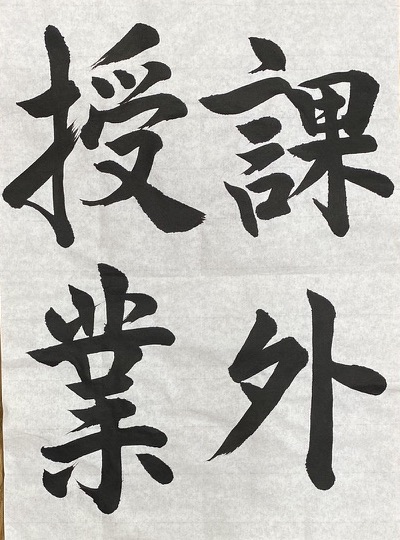 課外
授業